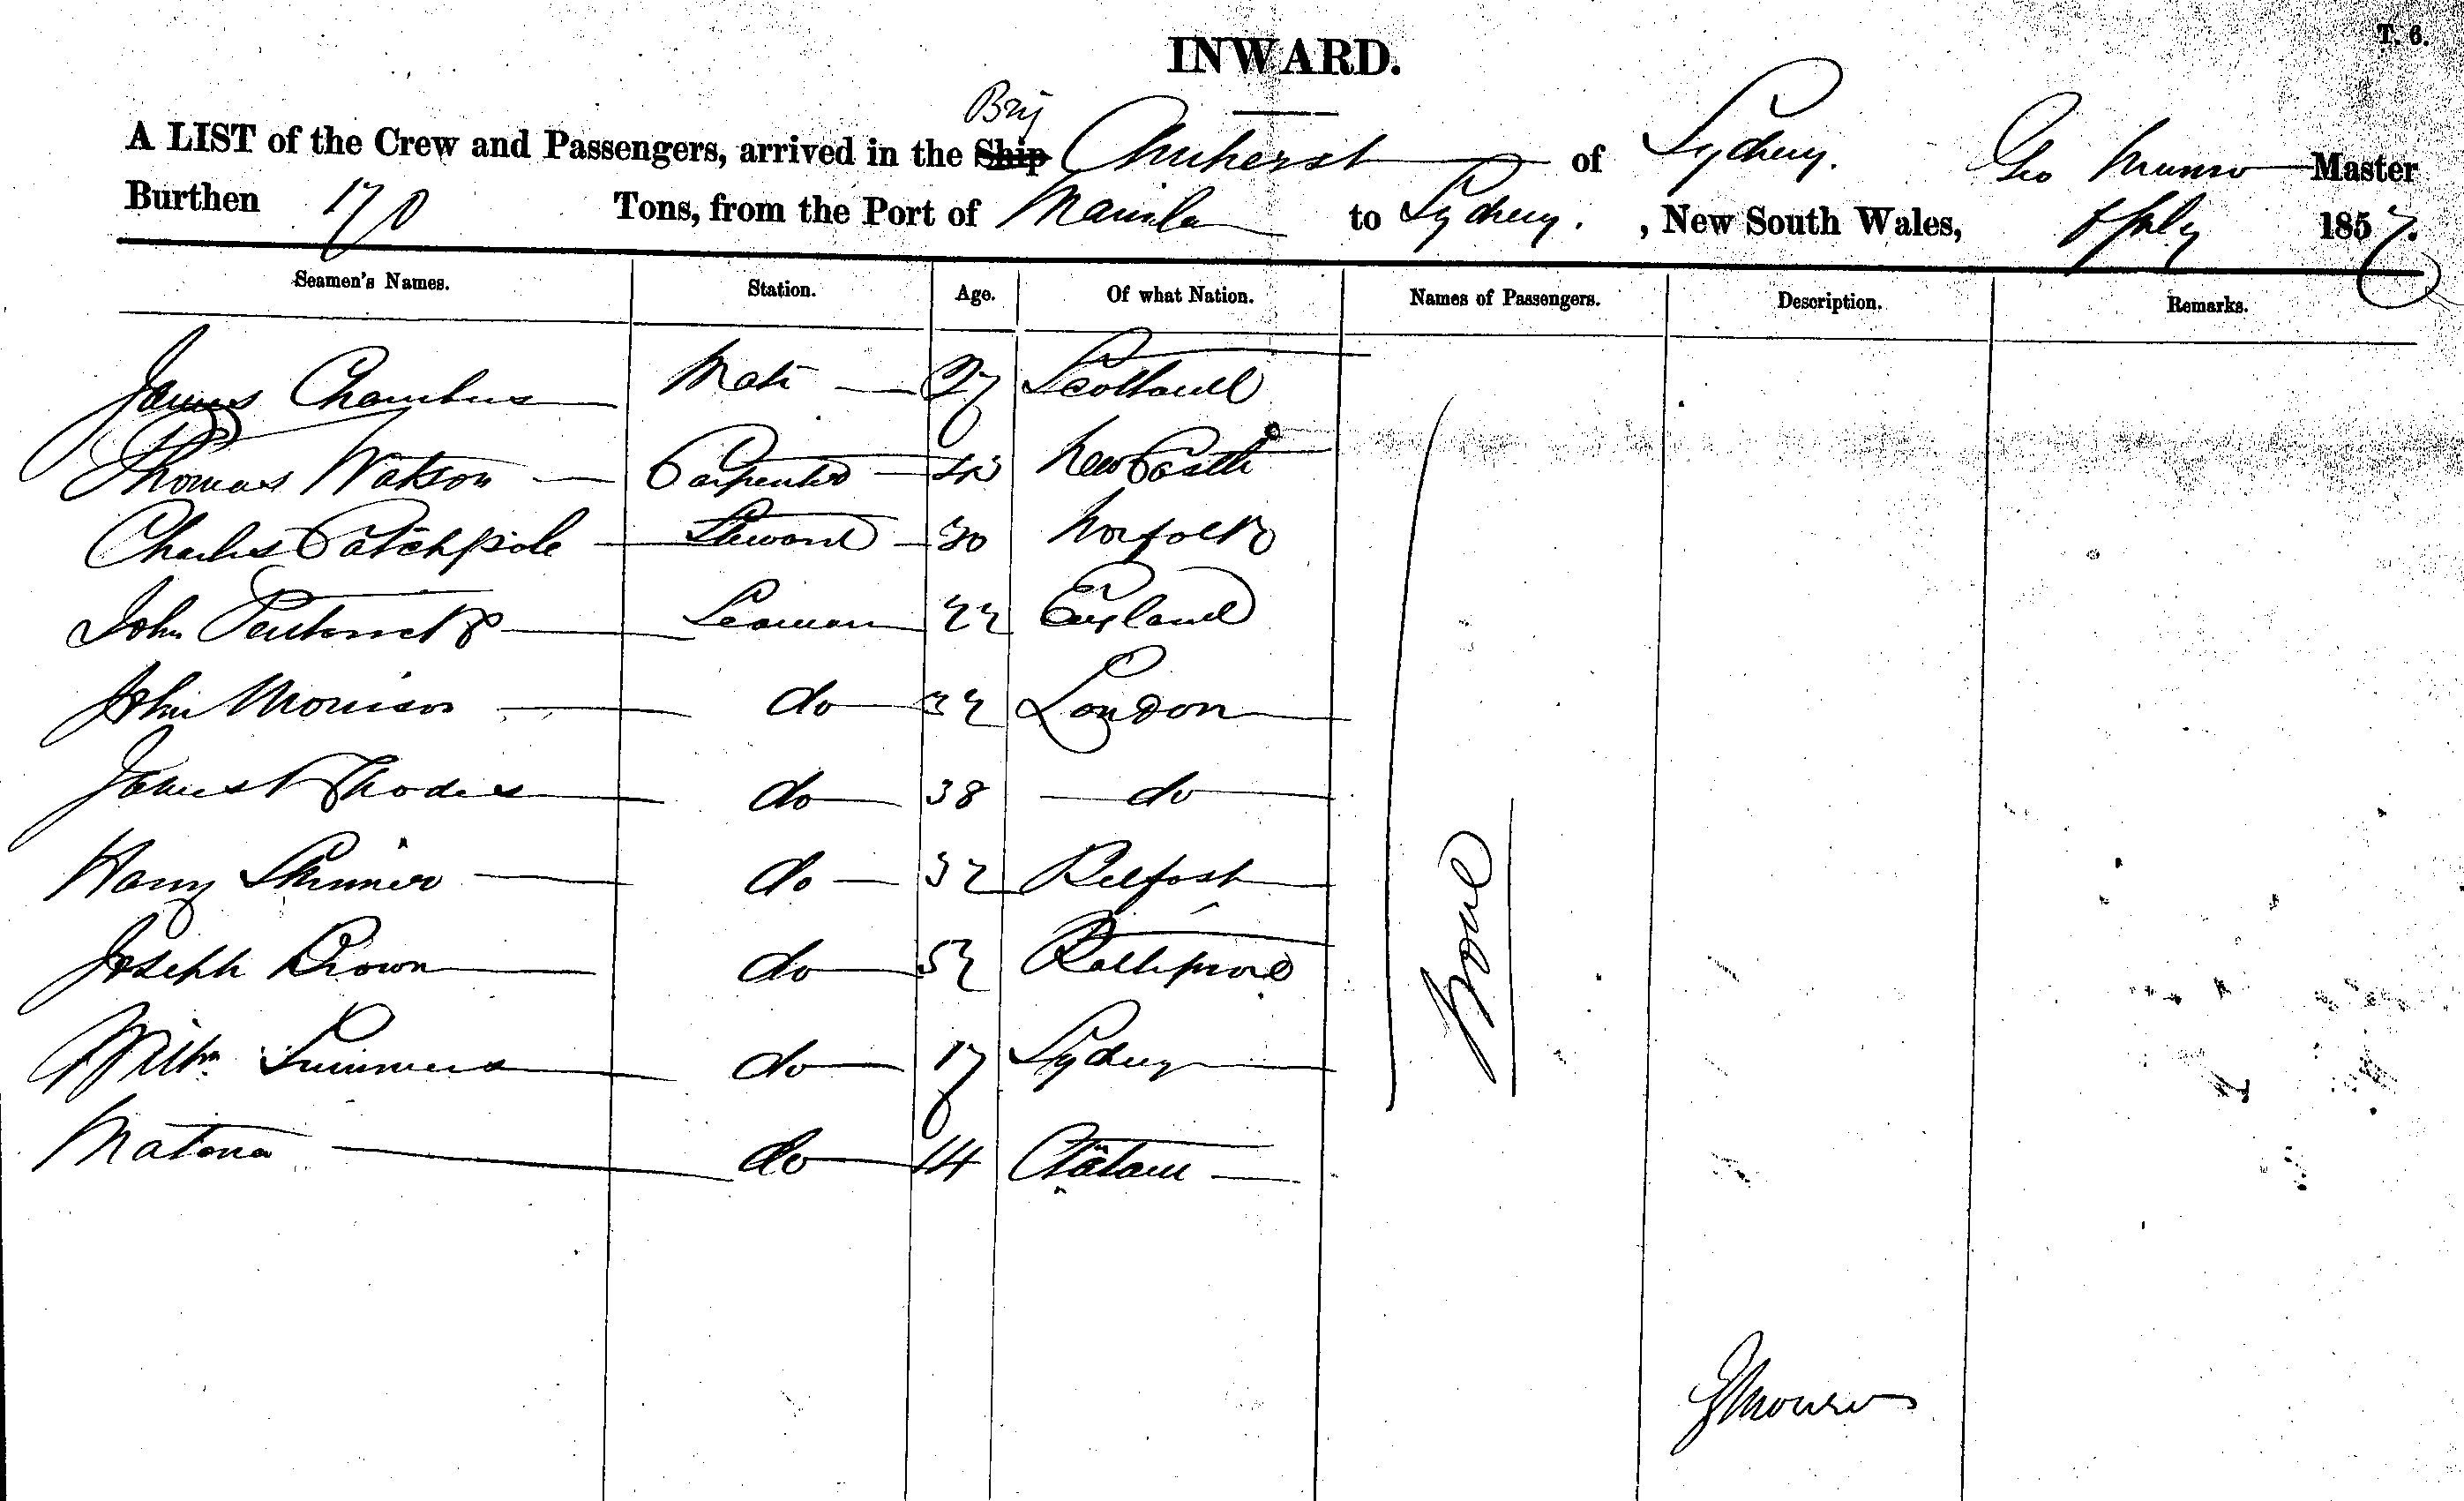 T. 6.
INWARD.
Brig
A LIST of the Crew and Passengers, arrived in the Ship Amherst of Sydney. Geo Munro Master
Burthen 170 Tons, from the Port of Manila to Sydney. , New South Wales, July 1857.
Seamen's Names. Station. Age. Of what Nation. Names of Passengers. Description. Remarks.
James Chambers Mate 27 Scotland
Thomas Watson Carpenter NewCastle
Charles Catchpole Steward 30 Norfolk
John Seaman 22 England
John Morrison do 32 London
James Rhodes do 38 do
Harry Skinner do 32 Belfast
Joseph Brown do 52
Willm Summers do 17 Sydney
Matona do 14
None
G Monro